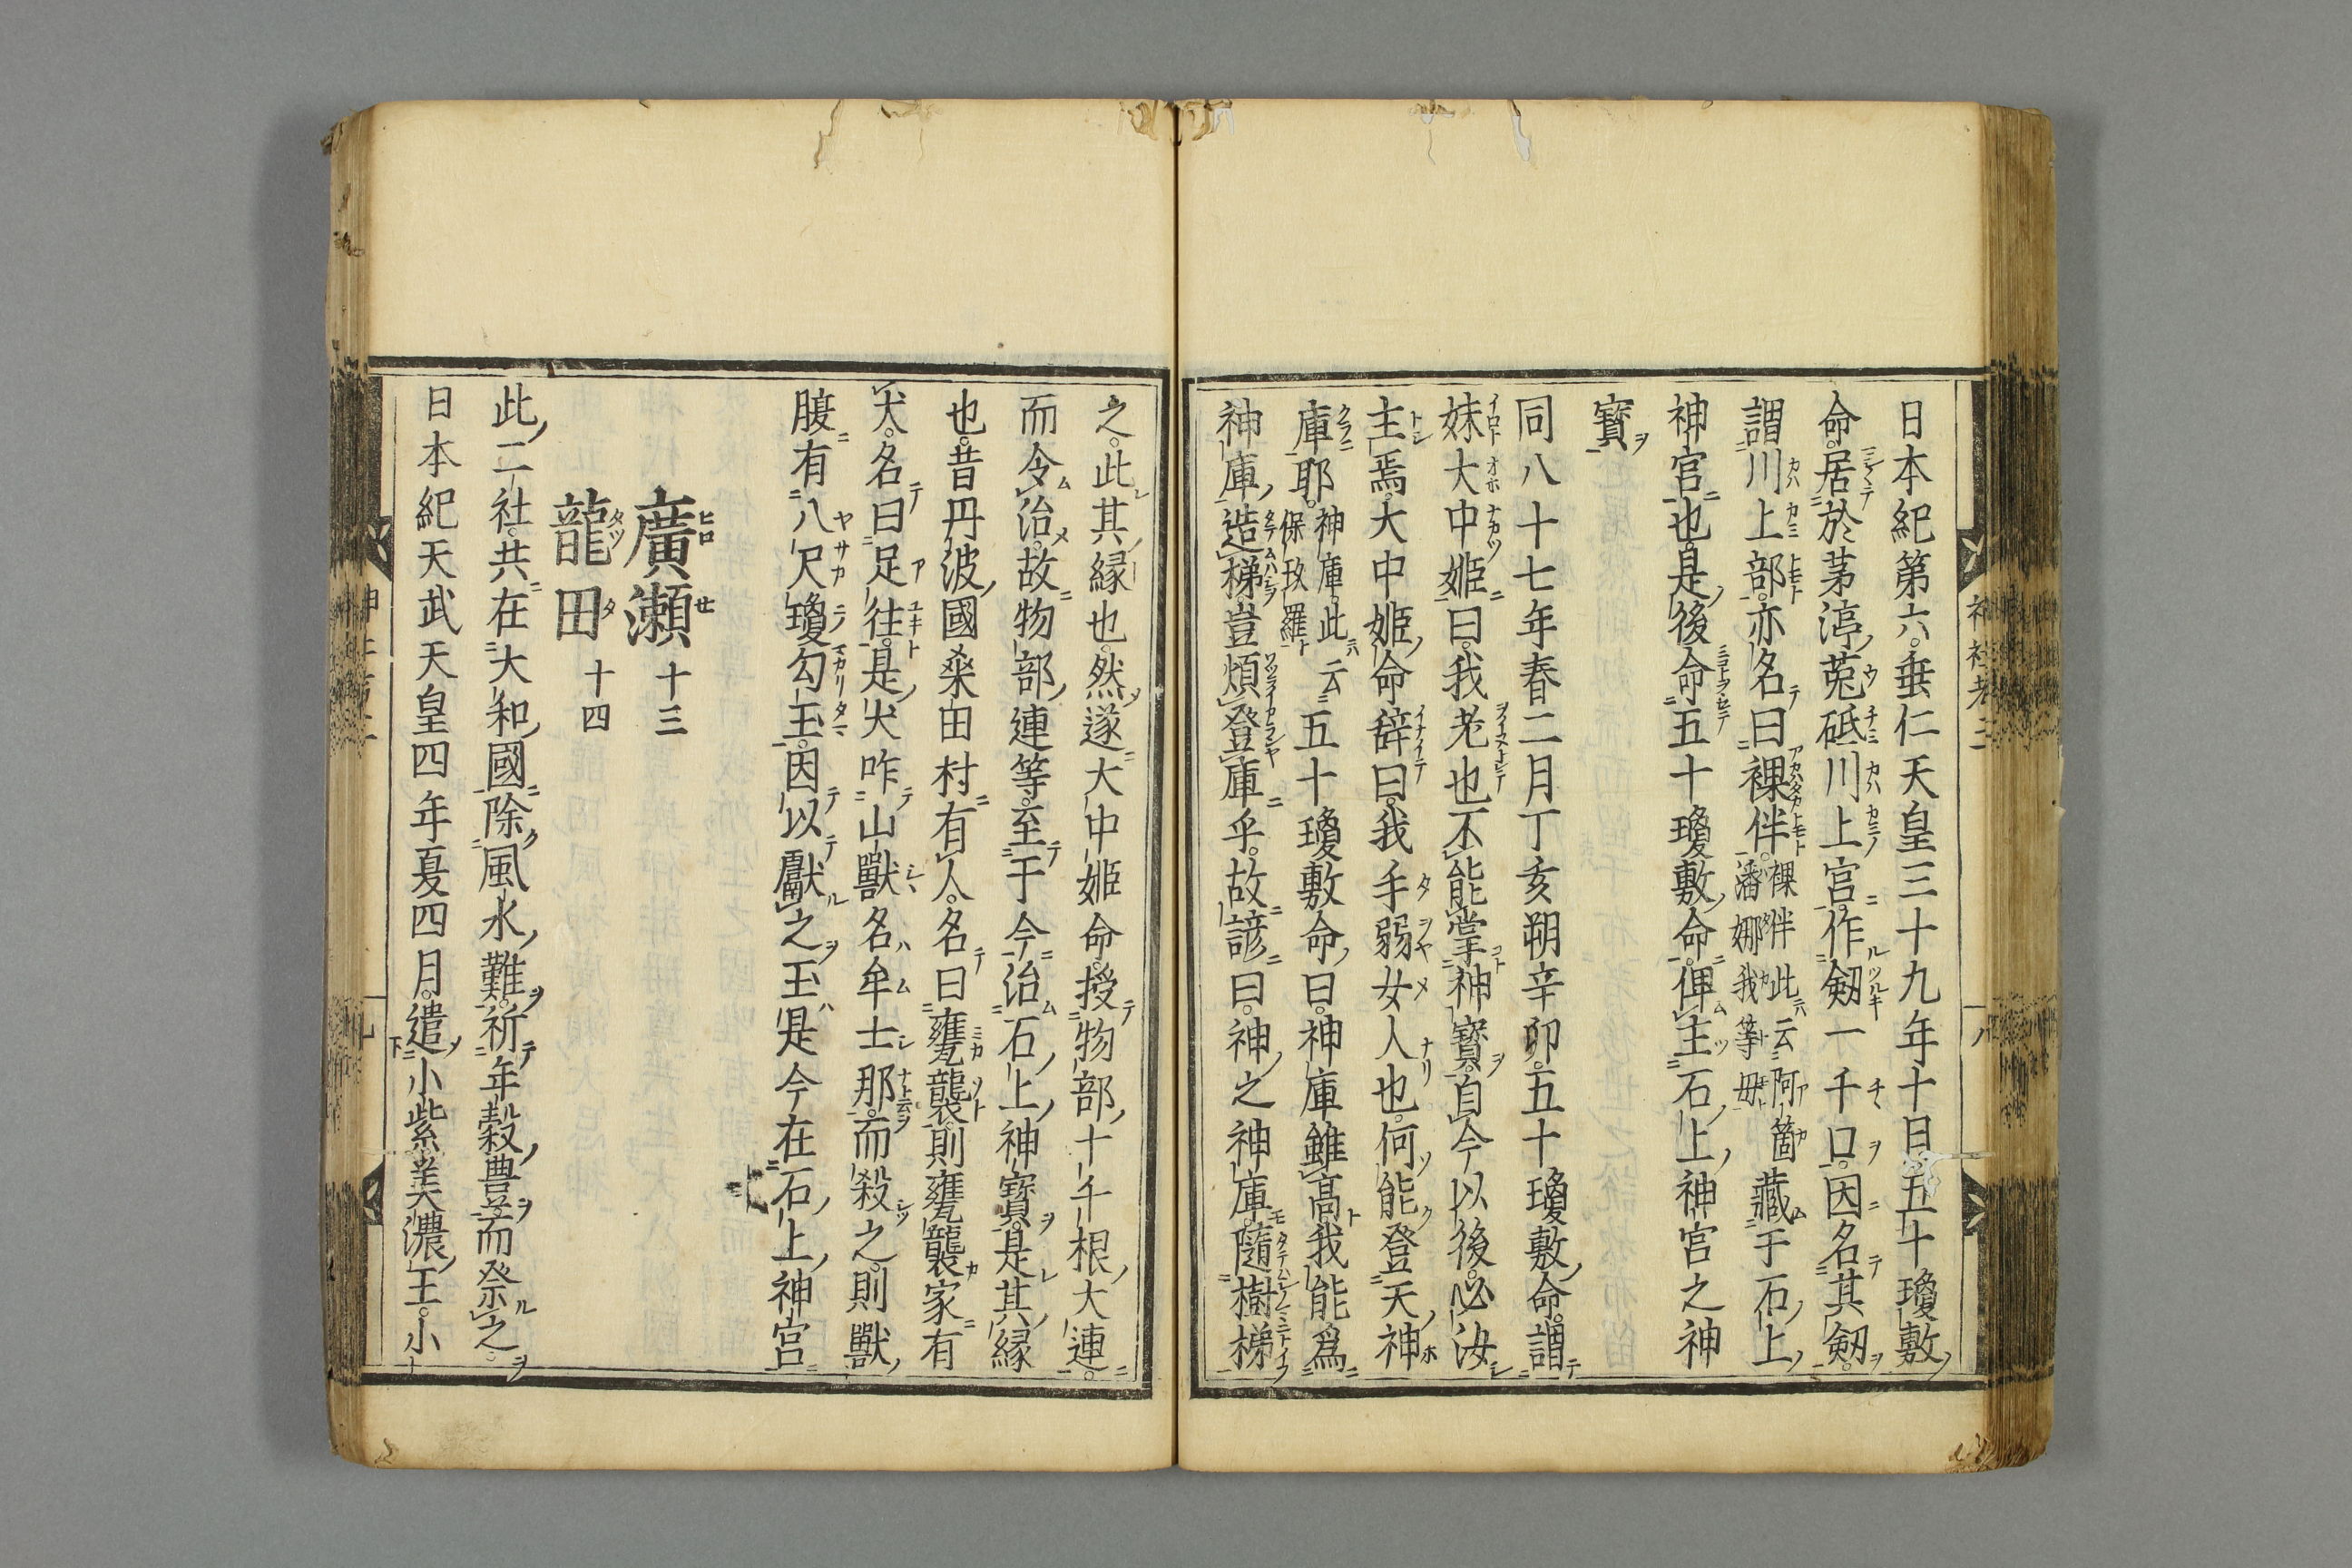 日本紀第六。垂仁天皇三十九年十日五十瓊敷
命。居於茅渟菟砥川上宮。作劔一千口。因名其劔。
謂川上部。亦名曰裸伴。裸伴此云阿箇潘娜我等毋藏于石上
神宮也。是後命五十瓊敷命。俾主石上神宮之神
寶
同八十七年春二月丁亥朔辛卯。五十瓊敷命。謂
妹大中姫曰。我老也不能掌神寶。自今以後。必汝
主焉。大中姫命辞曰。我手弱女人也。何能登天神
庫耶。神庫此云保玖羅五十瓊敷命曰。神庫雖高我能爲
神庫造梯。豈煩登庫乎。故諺曰。神之神庫隨樹梯
之。此其縁也。然遂大中姫命。授物部十千根大連。
而令治。故物部連等。至于今治石上神寶。是其縁
也。昔丹波國桒田村有人。名曰甕襲。則甕襲家有
犬。名曰足往。是犬咋山獸名牟士那。而殺之。則獸
腹有八尺瓊勾玉。因以獻之。玉是今在石上神宮
廣瀬 十三
龍田 十四
此二社。共在大和國。除風水難。祈年穀豊而祭之。
日本紀天武天皇四年夏四月。遣小紫美濃王。小
神社考二
一八